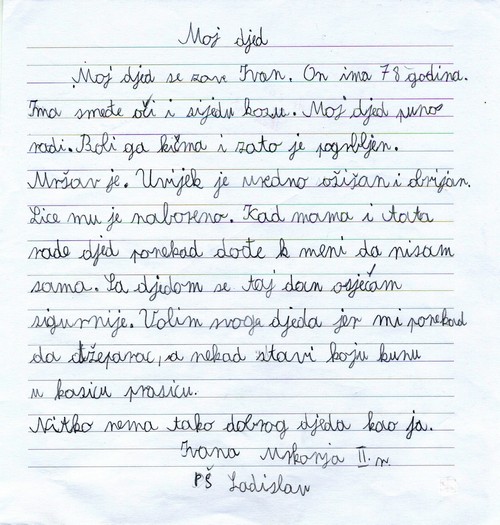 Moj djed
Moj djed se zove Ivan. On ima 78 godina.
Ima smeđe oči i sijedu kosu. Moj djed puno
radi. Boli ga kičma i zato je pogrbljen.
Mršav je. Uvijek je uredno ošišan i obrijan.
Lice mu je naborano. Kad mama i tata
rade djed ponekad dođe k meni da nisam
sama. Sa djedom se taj dan osjećam
sigurnije. Volim svoga djeda jer mi ponekad
da džeparac, a nekad stavi koju kunu
u kasicu prasicu.
Nitko nema tako dobrog djeda kao ja.
Ivana Mrkonja II. r.
PŠ Ladislav